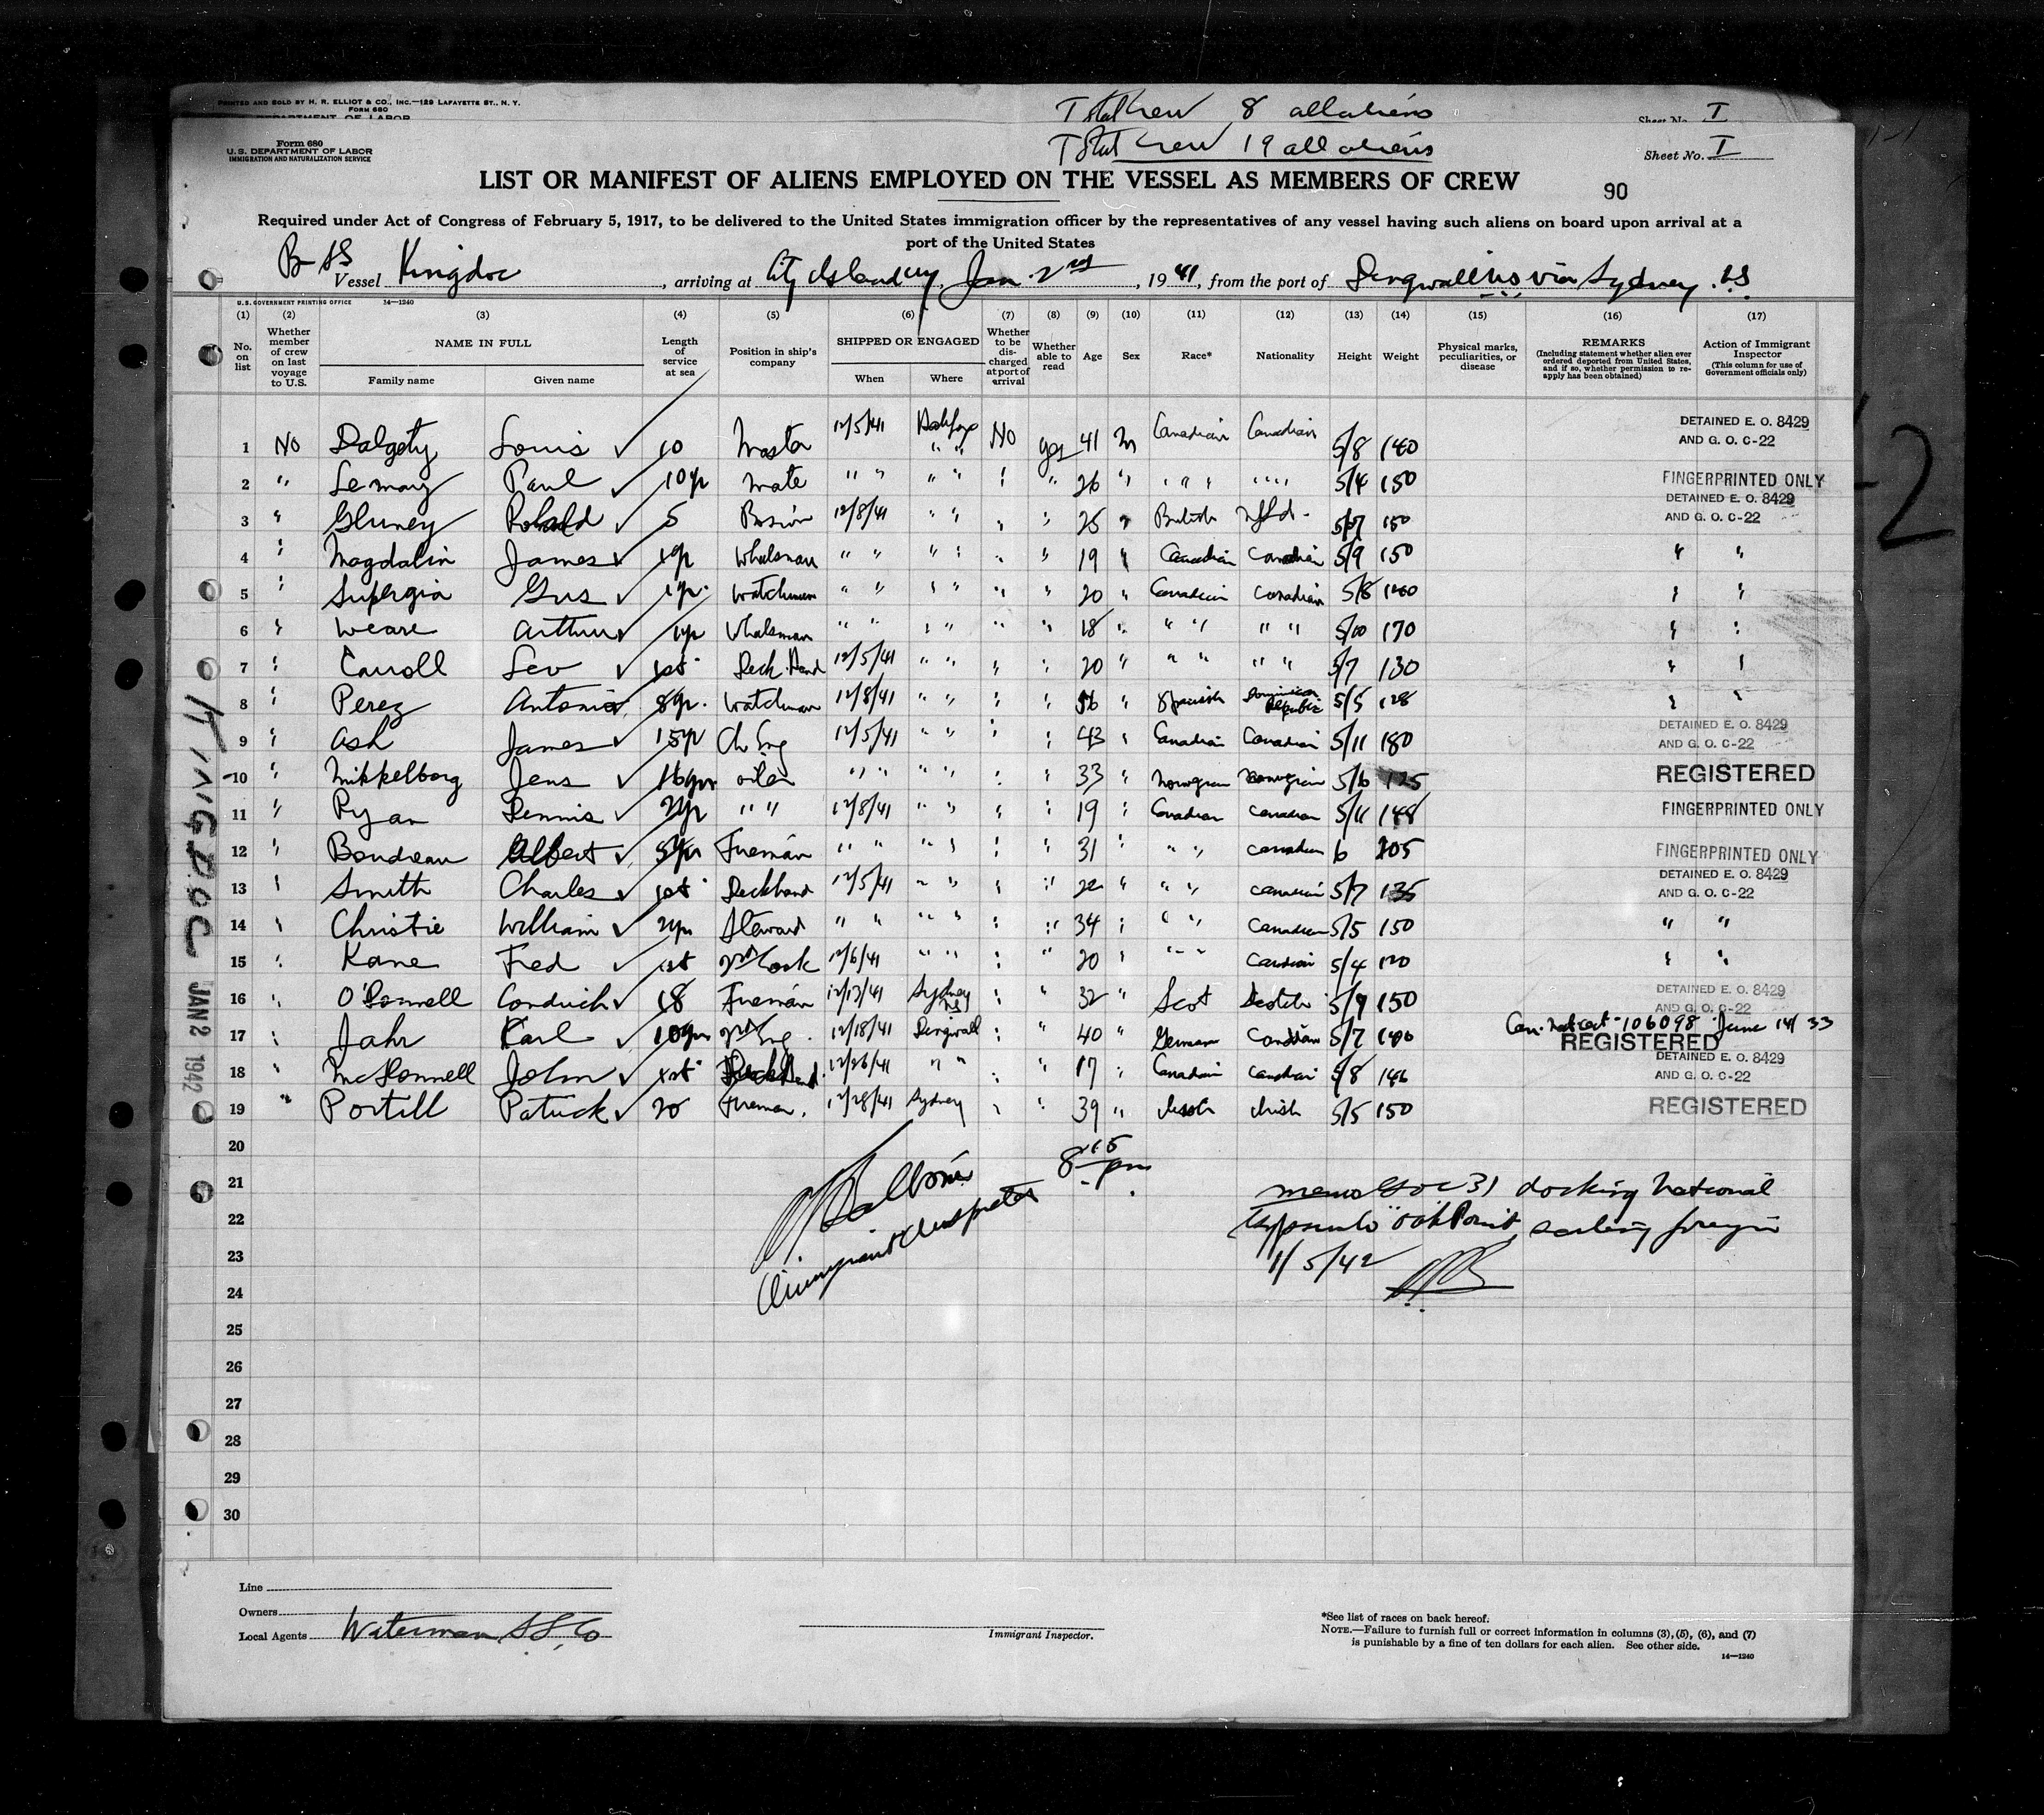 PRINTED AND SOLD BY H. R. ELLIOT & CO., INC.—129 LAFAYETTE ST., N. Y.
FORM 680
DEPARTMENT OF LABOR
Total Crew 8 all aliens
Sheet No. I
Total Crew 19 all aliens
Form 680
U. S. DEPARTMENT OF LABOR
IMMIGRATION AND NATURALIZATION SERVICE
Sheet No. I
LIST OR MANIFEST OF ALIENS EMPLOYED ON THE VESSEL AS MEMBERS OF CREW
90
Required under Act of Congress of February 5, 1917, to be delivered to the United States immigration officer by the representatives of any vessel having such aliens on board upon arrival at a
port of the United States
Br SS Vessel Kingdoc, arriving at City Island NY, Jan 2nd, 1941, from the port of Dingwall NS via Sydney N.S.
U.S. GOVERNMENT PRINTING OFFICE 14—1240
(1) (2) (3) (4) (5) (6) (7) (8) (9) (10) (11) (12) (13) (14) (15) (16) (17)
No. on list
Whether member of crew on last voyage to U.S.
NAME IN FULL
Family name Given name
Length of service at sea
Position in ship's company
SHIPPED OR ENGAGED
When Where
Whether to be discharged at port of arrival
Whether able to read
Age Sex Race* Nationality Height Weight
Physical marks, peculiarities, or disease
REMARKS
(Including statement whether alien ever ordered deported from United States, and if so, whether permission to reapply has been obtained)
Action of Immigrant Inspector
(This column for use of Government officials only)
1 No Dalgety Louis ✓ 10 Master 12/5/41 Halifax No yes 41 M Canadian Canadian 5/8 140 DETAINED E. O. 8429 AND G. O. C-22
2 " Lemay Paul ✓ 10yr Mate " " " " " " 26 " " " " " 5/4 150 FINGERPRINTED ONLY
3 " Gluney Ronald ✓ 5 Bosun 12/8/41 " " " " 25 " British Nfld. 5/7 150 DETAINED E. O. 8429 AND G. O. C-22
4 " Magdalin James ✓ 1yr Whelsman " " " " " " 19 " Canadian Canadian 5/9 150 " "
5 " Supergia Gus ✓ 1yr. Watchman " " " " " " 20 " Canadian Canadian 5/8 140 " "
6 " Weare Arthur ✓ 1yr Whelsman " " " " " " 18 " " " " " 5/10 170 " "
7 " Carroll Leo ✓ 1st Deck Hand 12/5/41 " " " " 20 " " " " " 5/7 130 " "
8 " Perez Antonio 8yr. Watchman 12/8/41 " " " " 56 " Spanish Dominican Republic 5/5 128 " "
9 " Ash James ✓ 15yr Ch Eng 12/5/41 " " " " 43 " Canadian Canadian 5/11 180 DETAINED E. O. 8429 AND G. O. C-22
10 " Mikkelborg Jens ✓ 16yrs oiler " " " " " " 33 " Norwegian Norwegian 5/6 125 REGISTERED
11 " Ryan Dennis ✓ 2yr " " 12/8/41 " " " " 19 " Canadian Canadian 5/11 148 FINGERPRINTED ONLY
12 " Boudreau Albert ✓ 5yr Fireman " " " " " " 31 " " " Canadian 6 205 FINGERPRINTED ONLY
13 " Smith Charles ✓ 1st Deckhand 12/5/41 " " " " 22 " " " Canadian 5/7 135 DETAINED E. O. 8429 AND G. O. C-22
14 " Christie William ✓ 2yrs Steward " " " " " " 34 " " " Canadian 5/5 150 " "
15 " Kane Fred ✓ 1st 2nd Cook 12/6/41 " " " " 20 " " " Canadian 5/4 120 " "
16 " O'Donnell ✓ 18 Fireman 12/13/41 Sydney NS " " 32 " Scot Scotch 5/9 150 DETAINED E. O. 8429 AND G. O. C-22
17 " Jahr Karl ✓ 10yrs 2nd Eng. 12/18/41 Dingwall " " 40 " German Canadian 5/7 140 Can. Nat cert - 106098 June 14/33 REGISTERED
18 " McDonnell John ✓ 1st Deck Hand. 12/26/41 " " " " 17 " Canadian Canadian 5/8 146 DETAINED E. O. 8429 AND G. O. C-22
19 " Portill Patrick ✓ 20 Fireman. 12/28/41 Sydney " " 39 " Irish Irish 5/5 150 REGISTERED
20
21
22
23
24
25
26
27
28
29
30
8 15 pm
Immigrant Inspector
memo GOC 31 docking National
Gypsum Co Oak Point sailing foreign
1/5/42
KINGDOC JAN 2 1942
2
Line
Owners
Local Agents Waterman SS Co
Immigrant Inspector.
*See list of races on back hereof.
NOTE.—Failure to furnish full or correct information in columns (3), (5), (6), and (7)
is punishable by a fine of ten dollars for each alien. See other side.
14—1240